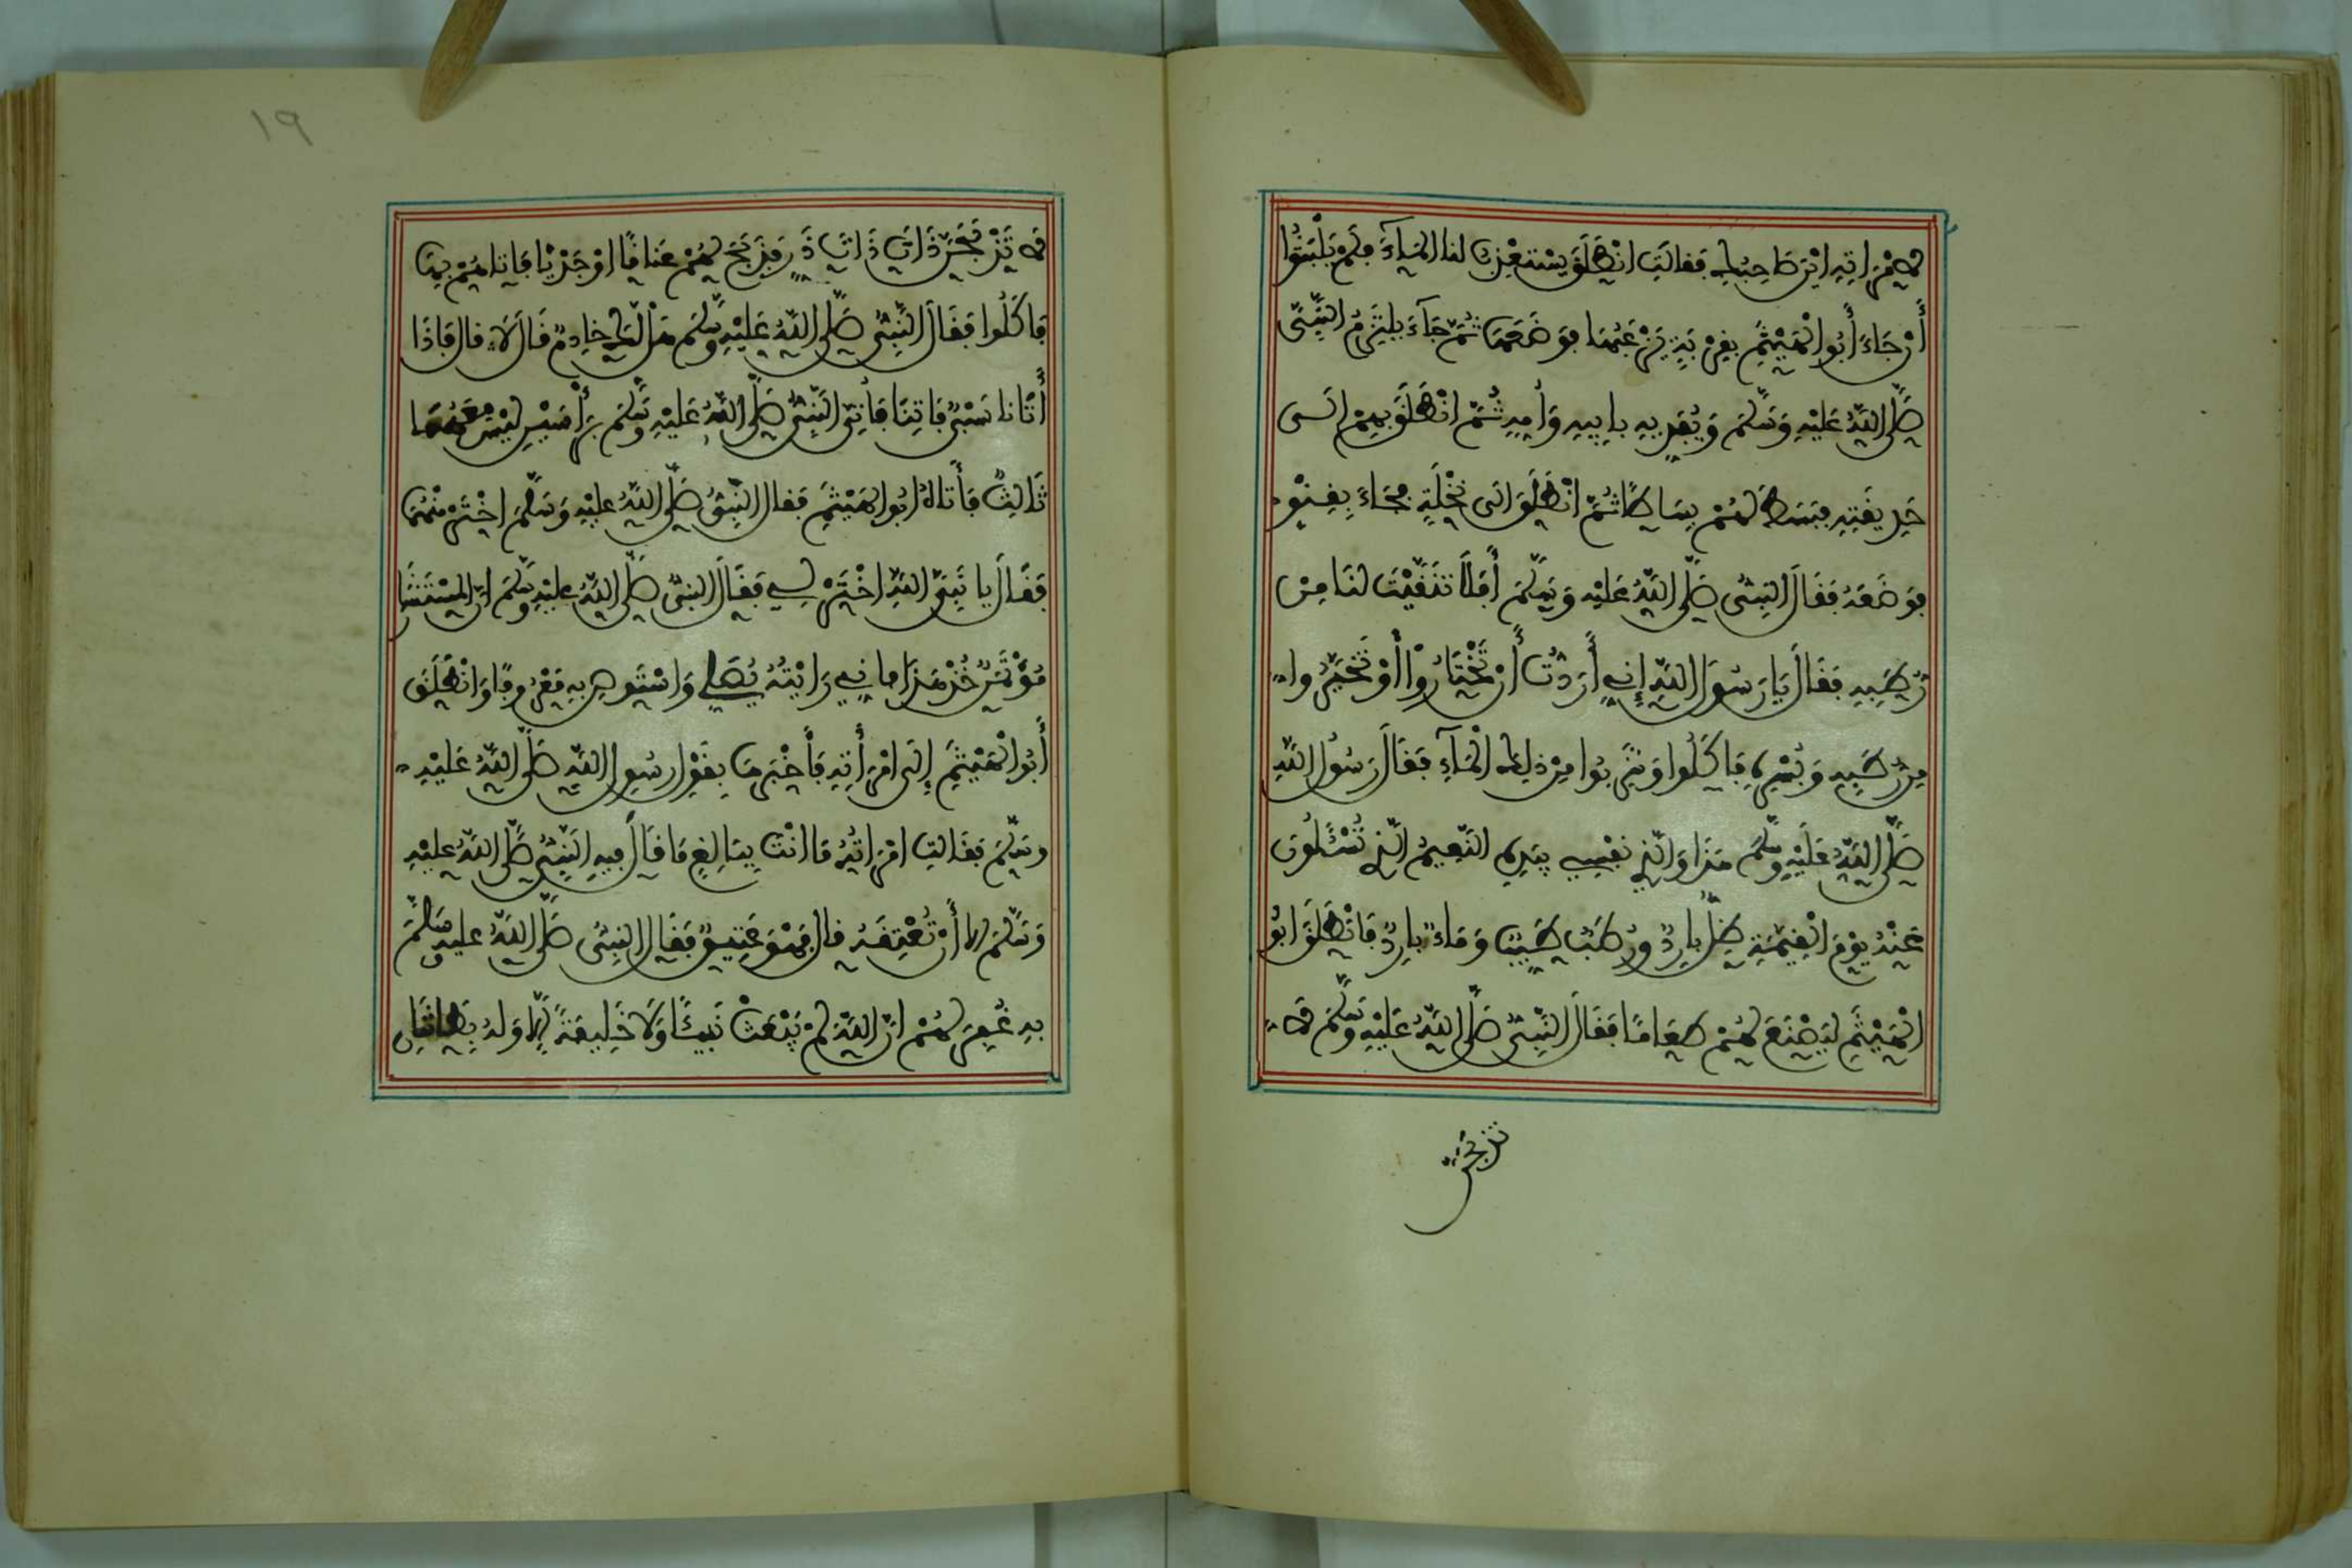 لامْرَاتِهِ ايْنَ صَاحِبُكِ فَقالَتِ انْطَلَقَ يَسْتَعْذِبُ لنا المَآءَ فلَمْ يَلْبَثُوا
أَنْ جَاءَ أَبُو الْهَيْثَمِ بِقِرْبَةٍ يَزْعَبُهَا فَوَضَعَهَا ثُمَّ جَآءَ يَلْتَزِمُ النَّبِىَّ
صَلَّى اللَّهُ عَلَيْهِ وَسَلَّمَ وَيُفَدِّيهِ بِأَبِيهِ وَأُمِّهِ ثُمَّ انْطَلَقَ بِهِمْ الَى
حَدِيقَتِهِ فبَسَطَ لَهُمْ بِسَاطًا ثُمَّ انْطَلَقَ الَى نَخْلَةٍ فجَاءَ بِقِنْوٍ
فَوَضَعَهُ فَقَالَ النَّبِىُّ صَلَّى اللَّهُ عَلَيْهِ وَسَلَّمَ أَفَلاَ تَنَقَّيْتَ لنَا مِنْ
رُطَبِهِ فَقَالَ يَا رَسُولَ اللَّهِ إِنِّي أَرَدْتُ أَنْ تَخْتَارُوا أَوْ تَخَيَّرُوا
مِنْ رُطَبِهِ وَبُسْرِهِ فَأَكَلُوا وَشَرِبُوا مِنْ ذَلِكَ الْمَآءِ فَقَالَ رَسُولُ اللَّهِ
صَلَّى اللَّهُ عَلَيْهِ وَسَلَّمَ هَذَا وَالَّذِي نَفْسِي بِيَدِهِ النَّعِيمُ الَّذِي تُسْئَلُونَ
عَنْهُ يَوْمَ الْقِيَمَةِ ظِلٌّ بَارِدٌ وَرُطَبٌ طَيِّبٌ وَمَاءٌ بَارِدٌ فَانْطَلَقَ ابُو
الْهَيْثَمِ لِيَصْنَعَ لَهُمْ طَعَامًا فَقَالَ النَّبِىُّ صَلَّى اللَّهُ عَلَيْهِ وَسَلَّمَ لا
تذبحن
١٩
لا تَذْبَحَنَّ ذَاتَ دَرٍّ فَذَبَحَ لَهُمْ عَنَاقًا اوْ جَدْيًا فَأَتَاهُمْ بِهَا
فَأَكَلُوا فَقَالَ النَّبِىُّ صَلَّى اللَّهُ عَلَيْهِ وَسَلَّمَ هَلْ لَكَ خَادِمٌ قَالَ لاَ قال فَاذَا
أَتَانَا سَبْىٌ فَاتِنَا فَأُتِىَ النَّبِىُّ صَلَّى اللَّهُ عَلَيْهِ وَسَلَّمَ بِرَأْسَيْنِ لَيْسَ مَعَهُمَا
ثَالِثٌ فَأَتَاهُ ابُو الهَيْثَمِ فَقال النَّبِىُّ صَلَّى اللَّهُ عَلَيْهِ وَسَلَّمَ اخْتَرْ مِنْهُمَا
فَقَالَ يَا نَبِىَّ اللَّهِ اخْتَرْ لِي فَقَالَ النَّبِىُّ صَلَّى اللَّهُ عَلَيْهِ وَسَلَّمَ انَّ المُسْتَشَارَ
مُؤْتَمَنٌ خُذْ هَذَا فَانِّي رَايْتُهُ يُصَلِّي وَاسْتَوْصِ بِهِ مَعْرُوفًا وَانْطَلَقَ
أَبُو الْهَيْثَمِ إِلَى امْرَأَتِهِ فَأَخْبَرَهَا بِقَوْلِ رَسُولِ اللَّهِ صَلَّى اللَّهُ عَلَيْهِ
وسَلَّمَ فَقَالَتِ امْرَاتُهُ مَا انْتَ بِبَالِغٍ مَا قَالَ فِيهِ النَّبِىُّ صَلَّى اللَّهُ عَلَيْهِ
وَسَلَّمَ إلا أَنْ تُعْتِقَهُ قال فهُوَ عَتِيقٌ فَقَالَ النَّبِىُّ صَلَّى اللَّهُ عَلَيْهِ وَسَلَّمَ
انَّ اللَّهَ لَمْ يَبْعَثْ نَبِيًّا وَلاَ خَلِيفَةً إِلاَّ وَلَهُ بِطَانَتَانِ